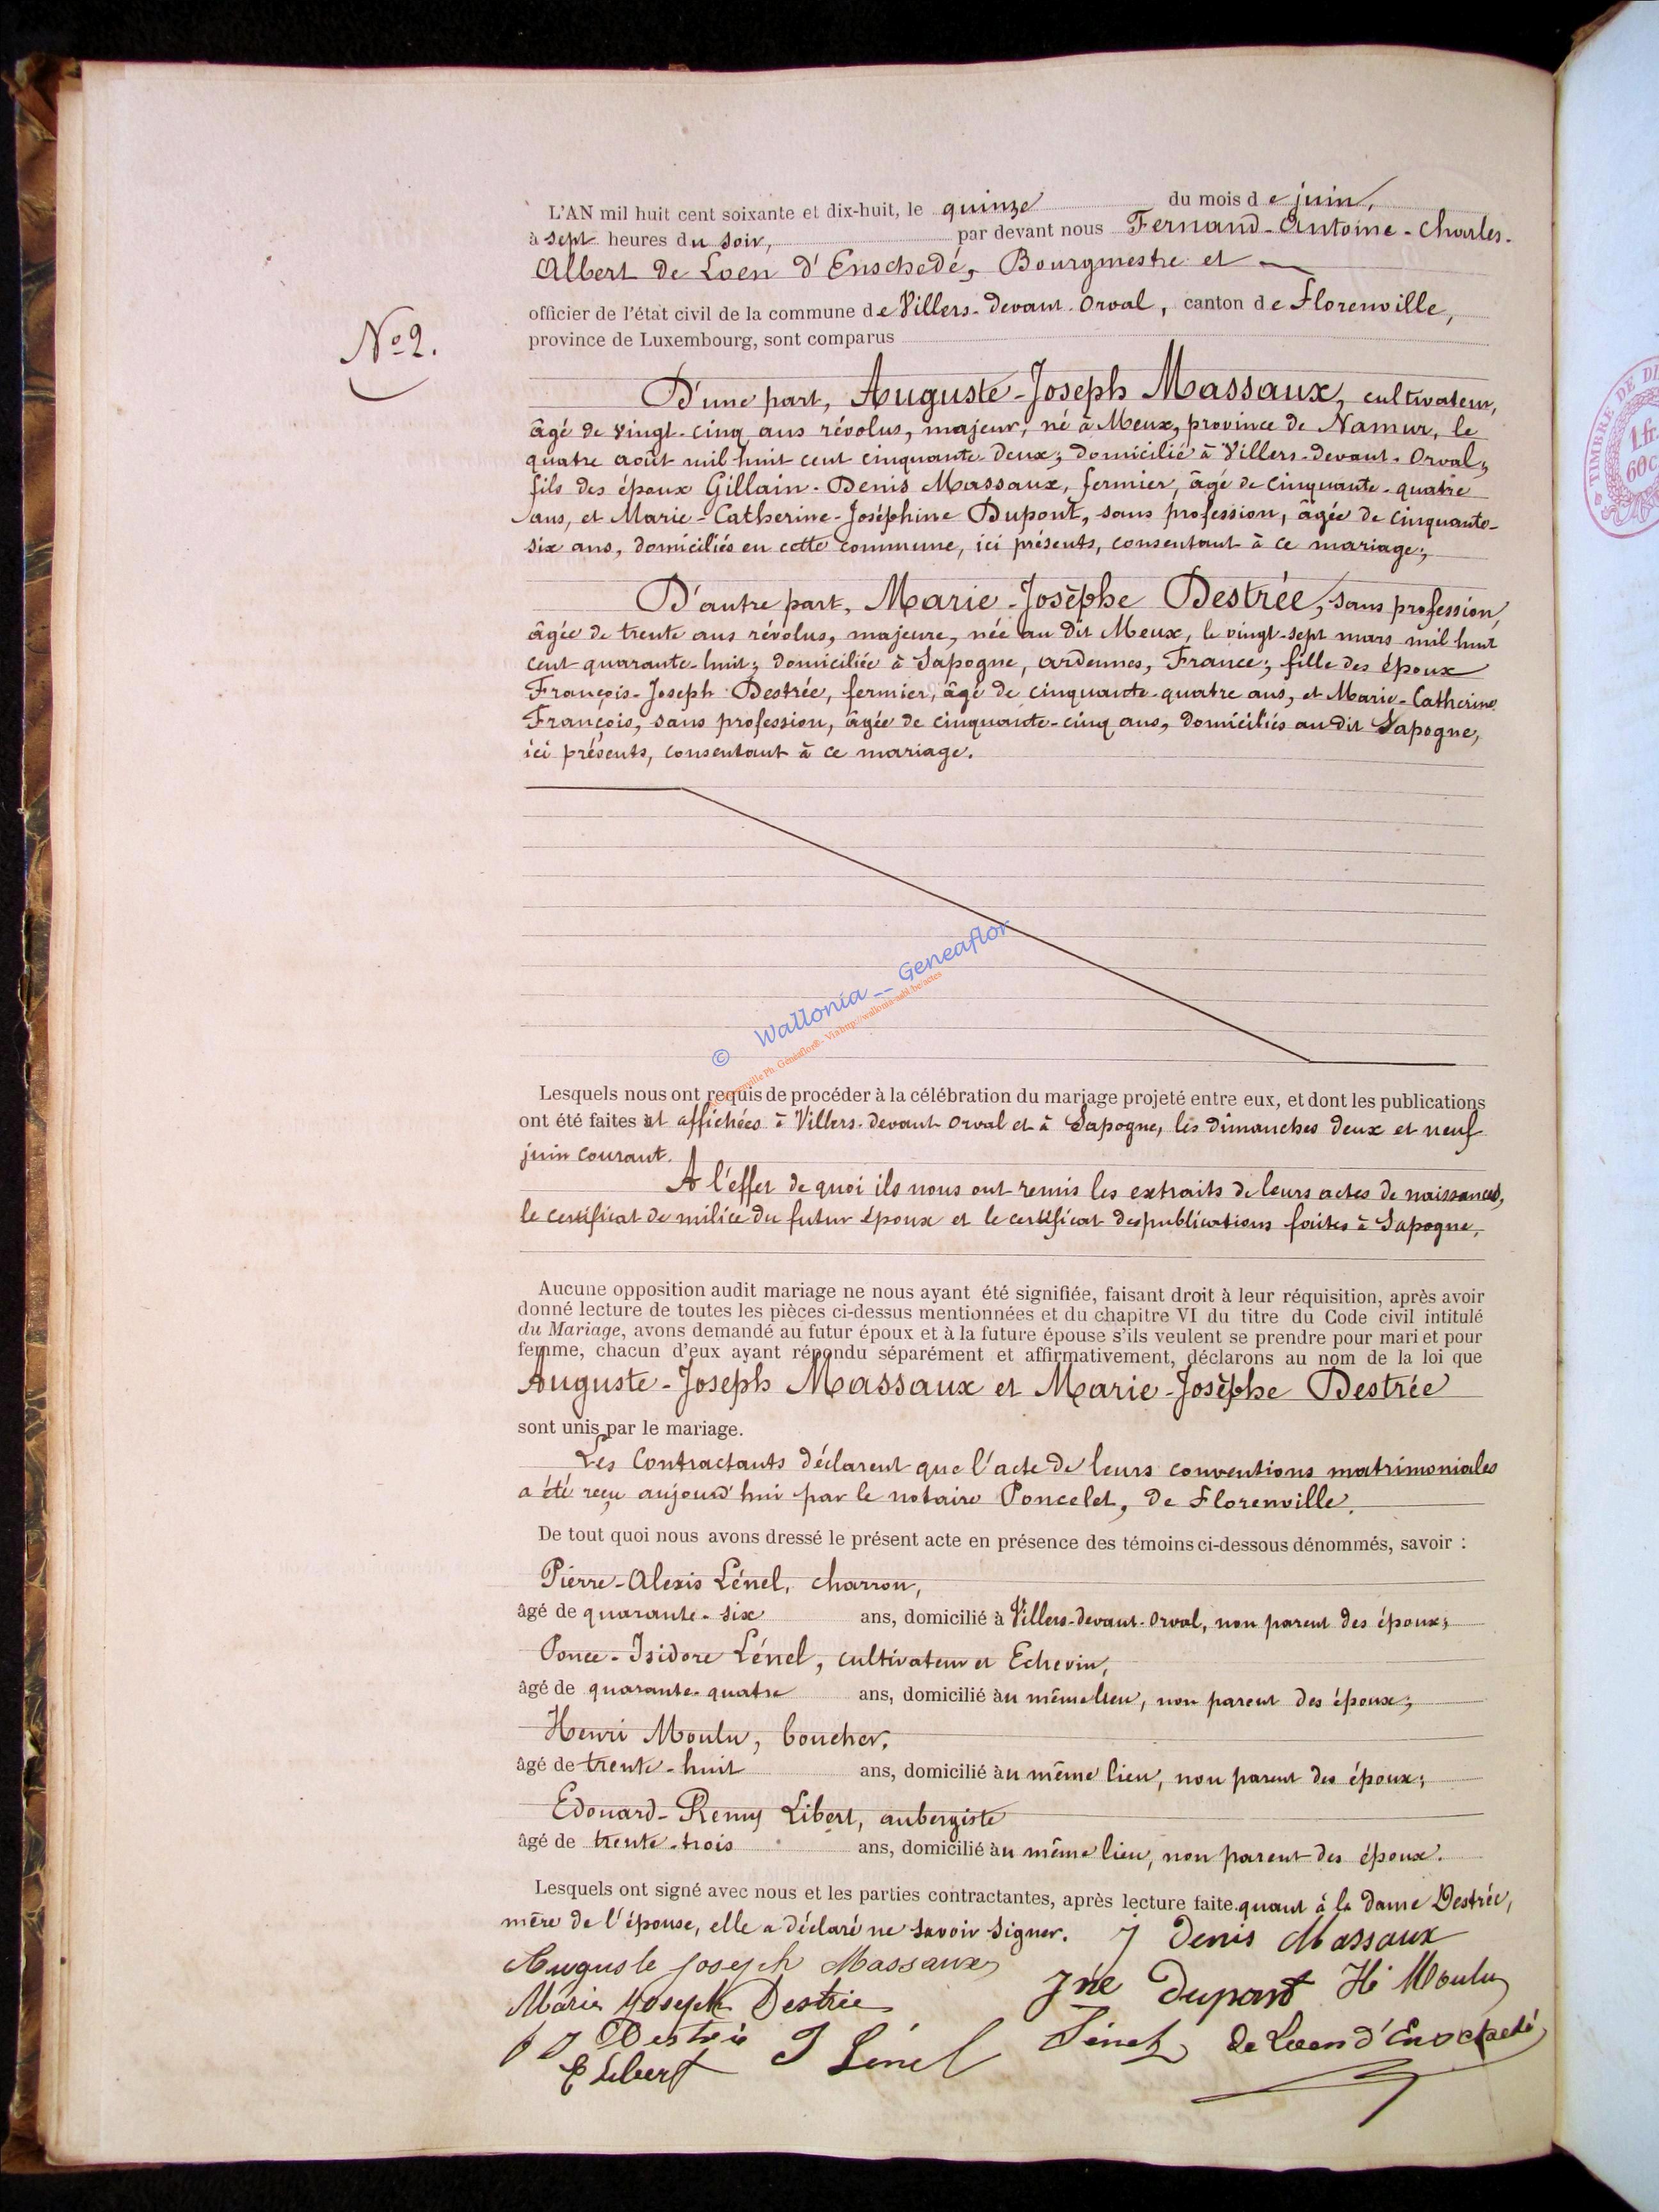 L'AN mil huit cent soixante et dix-huit, le quinze du mois de juin,
à sept heures du soir, par devant nous Fernand-Antoine-Charles-
Albert de Loen d'Enschedé, Bourgmestre et
officier de l'état civil de la commune de Villers-devant-Orval, canton de Florenville,
province de Luxembourg, sont comparus
No 2.
D'une part, Auguste-Joseph Massaux, cultivateur,
âgé de vingt-cinq ans révolus, majeur, né à Meux, province de Namur, le
quatre août mil huit cent cinquante-deux; domicilié à Villers-devant-Orval;
fils des époux Gillain-Denis Massaux, fermier, âgé de cinquante-quatre
ans, et Marie-Catherine-Joséphine Dupont, sans profession, âgée de cinquante-
six ans, domiciliés en cette commune, ici présents, consentant à ce mariage;
D'autre part, Marie-Josèphe Destrée, sans profession,
âgée de trente ans révolus, majeure, née au dit Meux, le vingt-sept mars mil huit
cent quarante-huit; domiciliée à Sapogne, ardennes, France; fille des époux
François-Joseph Destrée, fermier, âgé de cinquante-quatre ans, et Marie-Catherine
François, sans profession, âgée de cinquante-cinq ans, domiciliés au dit Sapogne,
ici présents, consentant à ce mariage.
© Wallonia -- Geneaflor
Ph. Généaflor® - Via http://wallonia-asbl.be/actes
Lesquels nous ont requis de procéder à la célébration du mariage projeté entre eux, et dont les publications
ont été faites et affichées à Villers-devant-Orval et à Sapogne, les dimanches deux et neuf
juin courant.
A l'effet de quoi ils nous ont remis les extraits de leurs actes de naissances,
le certificat de milice du futur époux et le certificat des publications faites à Sapogne,
Aucune opposition audit mariage ne nous ayant été signifiée, faisant droit à leur réquisition, après avoir
donné lecture de toutes les pièces ci-dessus mentionnées et du chapitre VI du titre du Code civil intitulé
du Mariage, avons demandé au futur époux et à la future épouse s'ils veulent se prendre pour mari et pour
femme, chacun d'eux ayant répondu séparément et affirmativement, déclarons au nom de la loi que
Auguste-Joseph Massaux et Marie-Josèphe Destrée
sont unis par le mariage.
Les Contractants déclarent que l'acte de leurs conventions matrimoniales
a été reçu aujourd'hui par le notaire Poncelet, de Florenville.
De tout quoi nous avons dressé le présent acte en présence des témoins ci-dessous dénommés, savoir :
Pierre-Alexis Lénel, charron,
âgé de quarante-six ans, domicilié à Villers-devant-Orval, non parent des époux;
Ponce-Isidore Lénel, cultivateur et Echevin,
âgé de quarante-quatre ans, domicilié au même lieu, non parent des époux;
Henri Moulu, boucher,
âgé de trente-huit ans, domicilié au même lieu, non parent des époux;
Edouard-Remy Libert, aubergiste
âgé de trente-trois ans, domicilié au même lieu, non parent des époux.
Lesquels ont signé avec nous et les parties contractantes, après lecture faite. quant à la dame Destrée,
mère de l'épouse, elle a déclaré ne savoir signer. J Denis Massaux
Auguste Joseph Massaux
Jne Dupont Hi Moulu
Marie Joseph Destrée
f J Destrée I Lénel Lénel de Loen d'Enschedé
E Libert
TIMBRE DE DI
1 fr.
60c